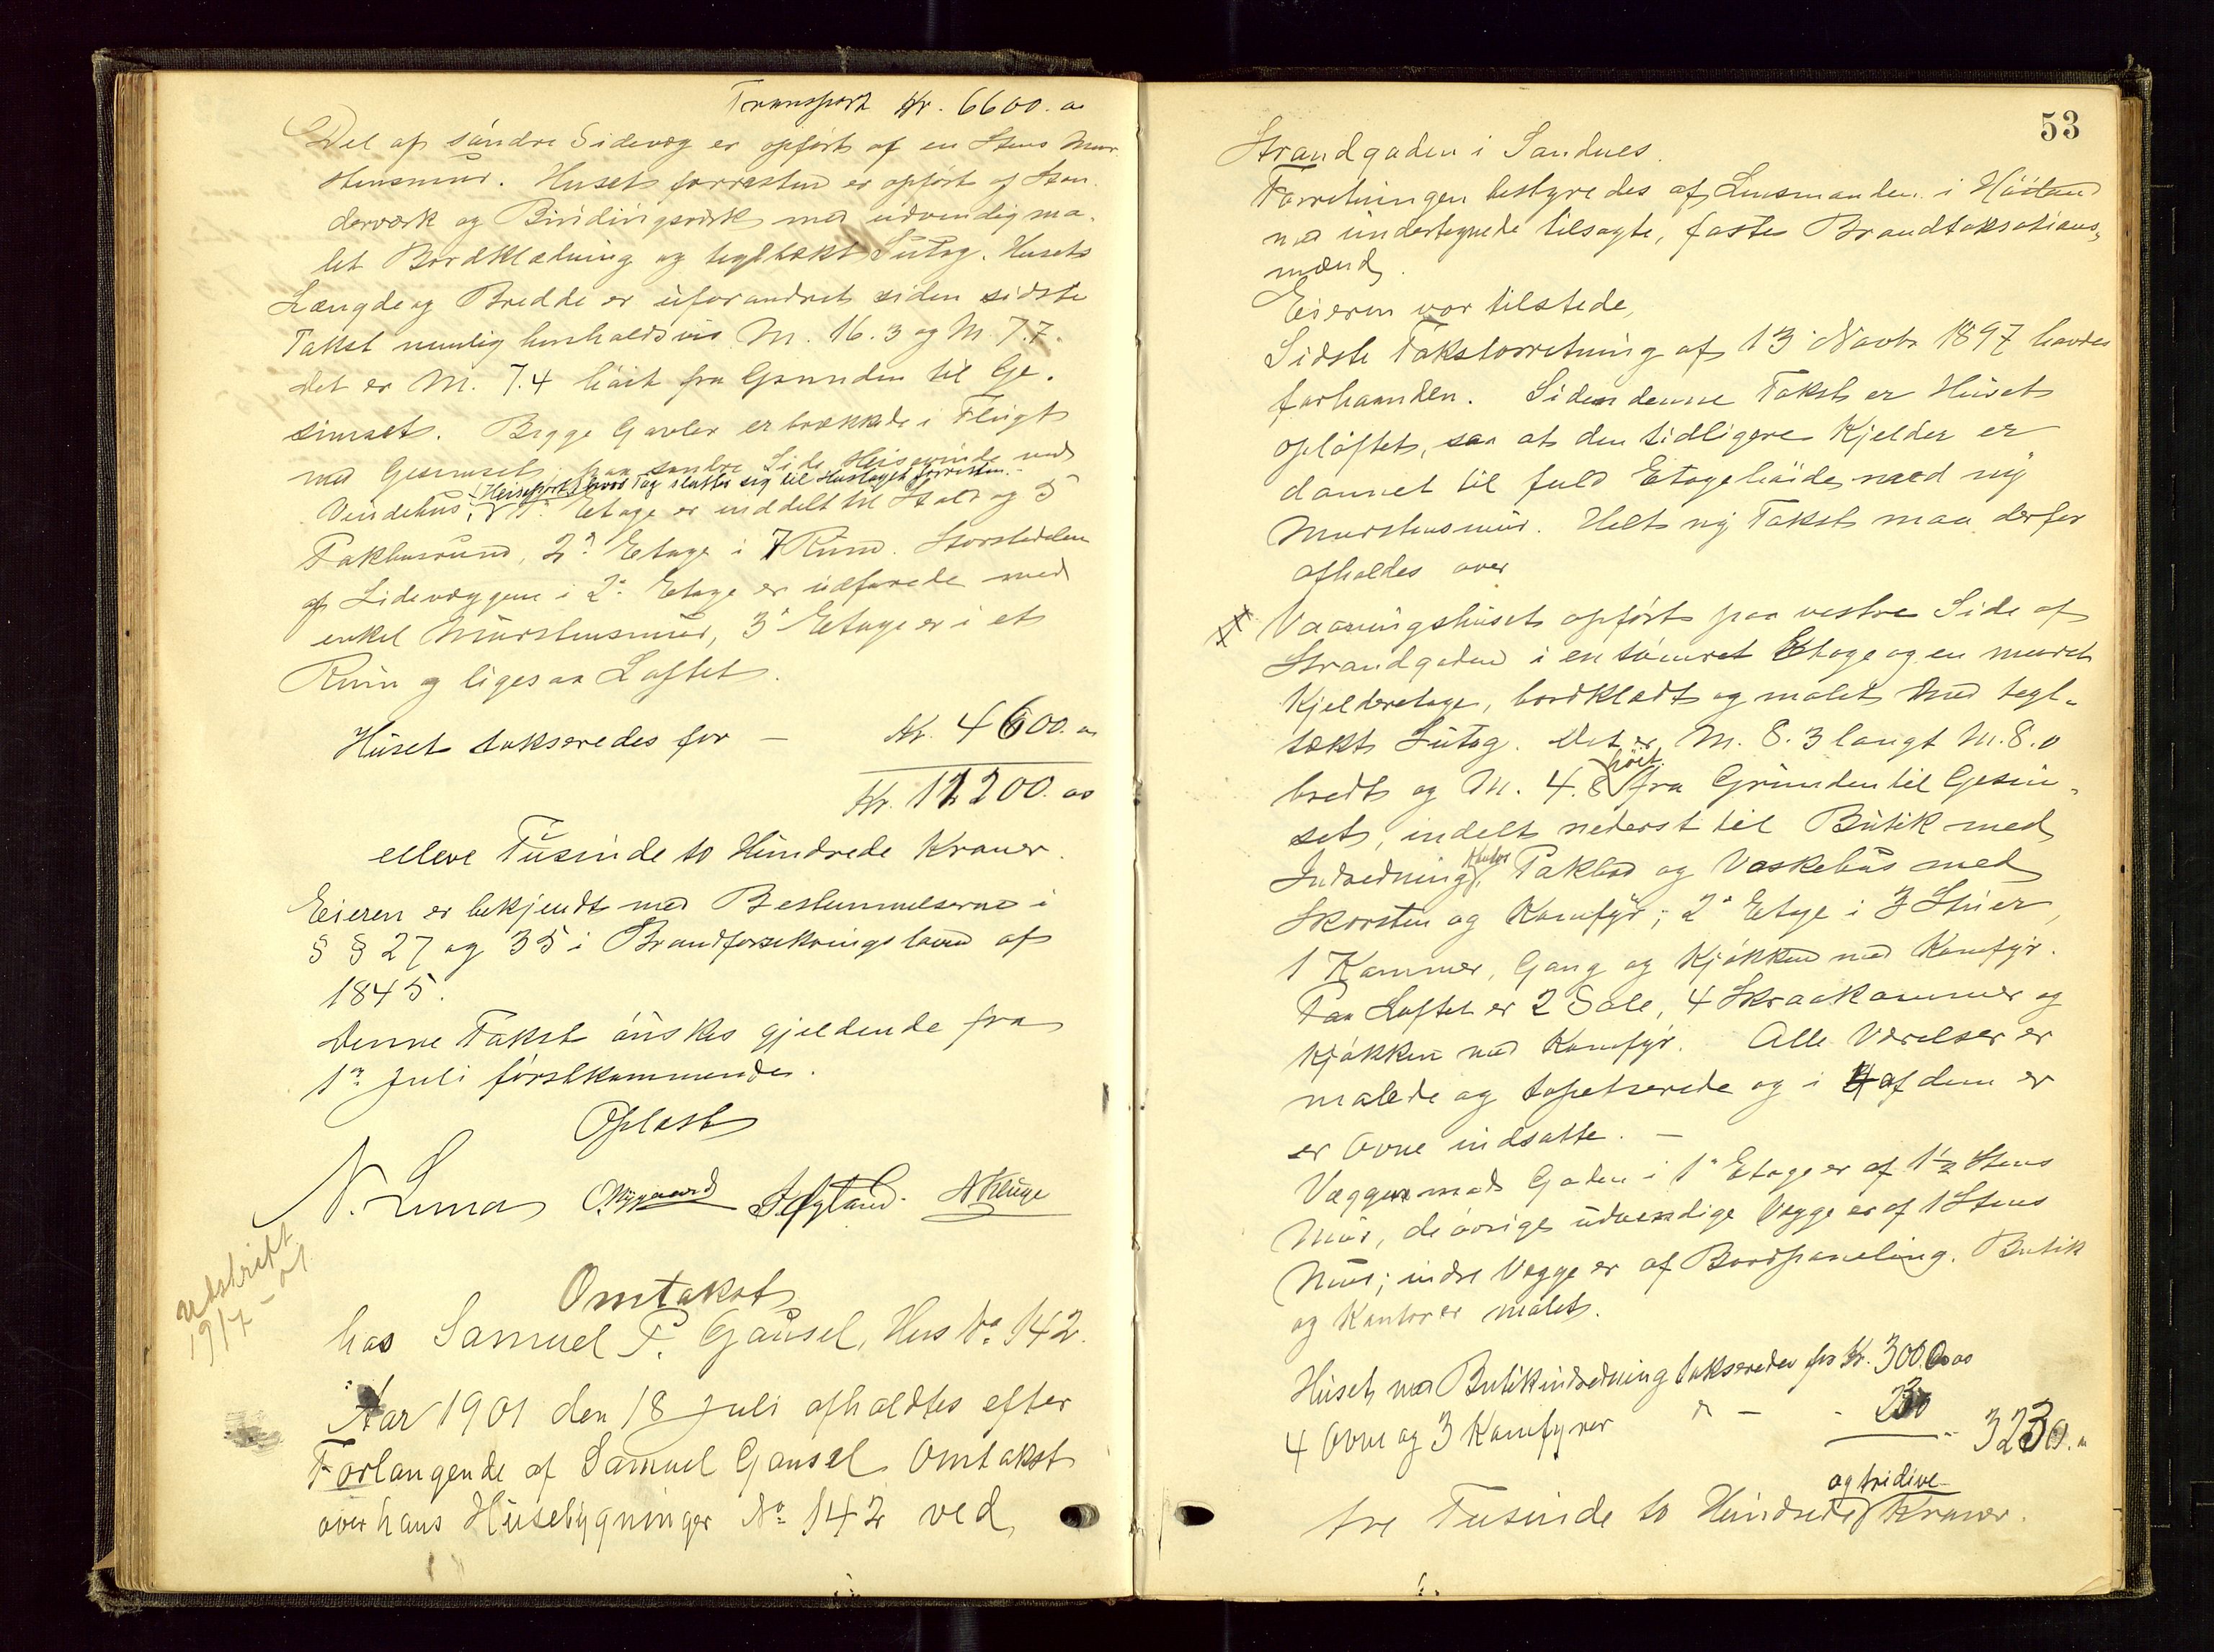 Transport Kr. 6600.00
Del af søndre Sidevæg er opført af en Stens Mur-
stensmur. Husets forresten er opført af Stan-
derværk og Bindingsværk med udvendig ma-
let Bordklædning og tegltækt Sutag. Husets
Længde og Bredde er uforandret siden sidste
Takst nemlig henholdsvis M. 16.3 og M. 7.7.
Det er M. 7.4 høit fra Grunden til Ge-
simset. Begge Gavler er trækkede i Flugt
med Gesimset, paa søndre Side Heiseværk med
(Heiseport) hvis Tag slutter sig til Hustaget forresten.
Vindehus; 1ste Etage er inddelt til Stald og 5
Pakhusrum, 2den Etage i 7 Rum. Størstedelen
af Sidevæggene i 2den Etage er udforede med
enkel Murstensmur, 3die Etage er i et
Rum og ligesaa Loftet.
Huset takseredes for — Kr. 4600.00
Kr. 11200.00
elleve Tusinde to Hundrede Kroner.
Eieren er bekjendt med Bestemmelserne i
§ § 27 og 35 i Brandforsikringsloven af
1845.
Denne Takst ønskes gjeldende fra
1ste Juli førstkommende.
Oplæst
N. Lima O. Nygaard Høyland A Kluge
Udskrift
19/7 - 01
Omtakst
hos Samuel P. Gausel, Hus No 142.
Aar 1901 den 18 Juli afholdtes efter
Forlangende af Samuel Gausel Omtakst
over hans Husebygninger No 142 ved
53
Strandgaden i Sandnes.
Forretningen bestyredes af Lensmanden i Høiland
med undertegnede tilsagte, faste Brandtaksations-
mænd.
Eieren var tilstede,
Sidste Takstforretning af 13 Novbr 1897 havdes
forhaanden. Siden denne Takst er Huset
opløftet, saa at den tidligere Kjelder er
dannet til fuld Etagehøide med ny
Murstensmur. Helt ny Takst maa derfor
afholdes over
Vaaningshuset opført paa vestre Side af
Strandgaden i en tømret Etage og en muret
Kjelderetage, bordklædt og malet med tegl-
tækt Sutag. Det er M. 8.3 langt M. 8.0
bredt og M. 4.8 høit fra Grunden til Gesim-
set, indelt nederst til Butik med
Indredning, Kontor, Pakbod og Vaskehus med
Skorsten og Komfyr; 2den Etage i 3 Stuer,
1 Kammer, Gang og Kjøkken med Komfyr.
Paa Loftet er 2 Sale, 4 Skraakammer og
Kjøkken med Komfyr. Alle Værelser er
malede og tapetserede og i 4 af dem er
er Ovne indsatte. —
Væggen mod Gaden i 1ste Etage er af 1½ Stens
Mur, de øvrige udvendige Vægge er af 1 Stens
Mur; indre Vægge er af Bordpaneling. Butik
og Kontor er malet.
Huset med Butikindredning takseredes for Kr. 3000.00
4 Ovne og 3 Komfyrer " — - 230 - 3230.00
tre Tusinde to Hundrede og tridive Kroner.